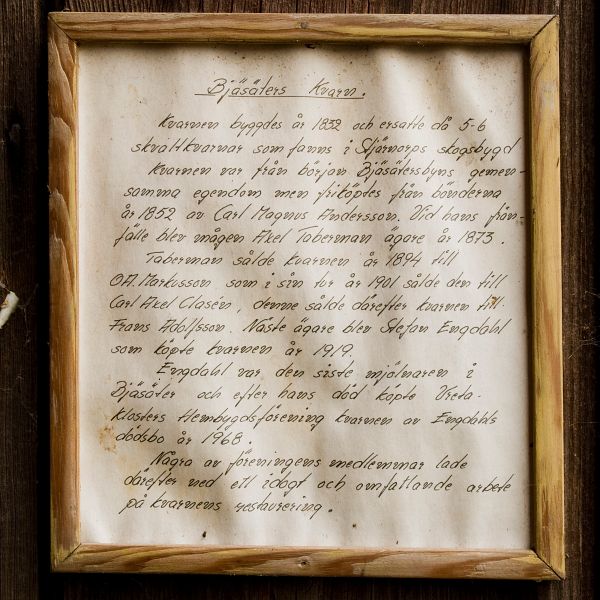 Bjäsäters Kvarn.
Kvarnen byggdes år 1832 och ersatte då 5-6
skvaltkvarnar som fanns i Stjärnorps skogsbygd
Kvarnen var från början Bjäsätersbyns gemen-
samma egendom men friköptes från bönderna
år 1852 av Carl Magnus Andersson. Vid hans från-
fälle blev mågen Axel Taberman ägare år 1873.
Taberman sålde kvarnen år 1894 till
O.A. Markusson som i sin tur år 1901 sålde den till
Carl Axel Clasén, denne sålde därefter kvarnen till
Frans Adolfsson. Näste ägare blev Stefan Engdahl
som köpte kvarnen år 1919.
Engdahl var den siste mjölnaren i
Bjäsäter och efter hans död köpte Vreta-
klosters Hembygdsförening kvarnen av Engdahls
dödsbo år 1968.
Några av föreningens medlemmar lade
därefter ned ett idogt och omfattande arbete
på kvarnens restaurering.